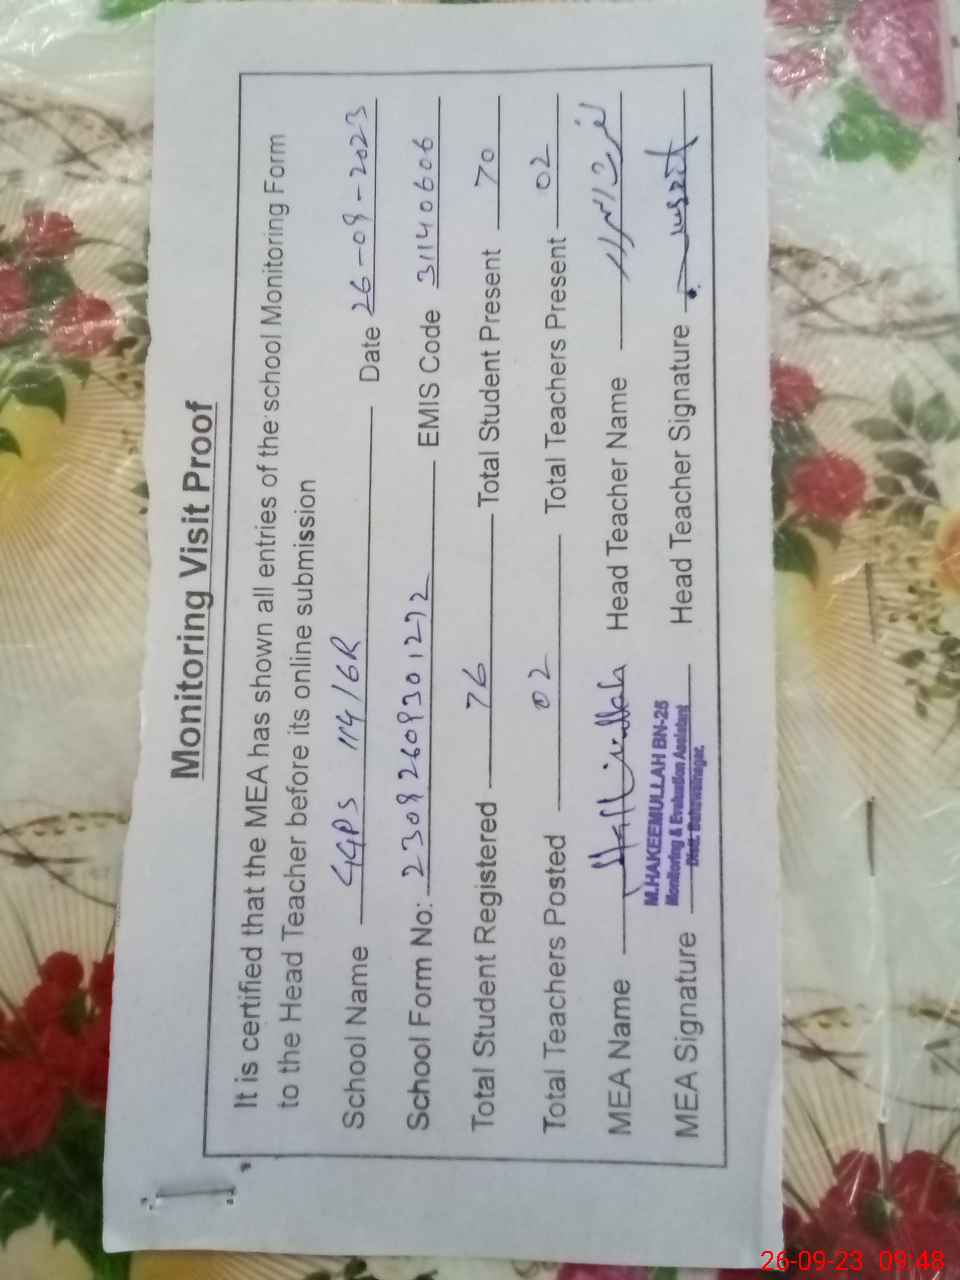 Monitoring Visit Proof
It is certified that the MEA has shown all entries of the school Monitoring Form
to the Head Teacher before its online submission
School Name GGPS 114/6R Date 26-09-2023
School Form No: 23092609301272 EMIS Code 31140606
Total Student Registered 76 Total Student Present 70
Total Teachers Posted 02 Total Teachers Present 02
MEA Name Head Teacher Name
M.HAKEEMULLAH BN-25
Monitoring & Evaluation Assistant
Distt. Bahawalnagar.
MEA Signature Head Teacher Signature
26-09-23 09:48